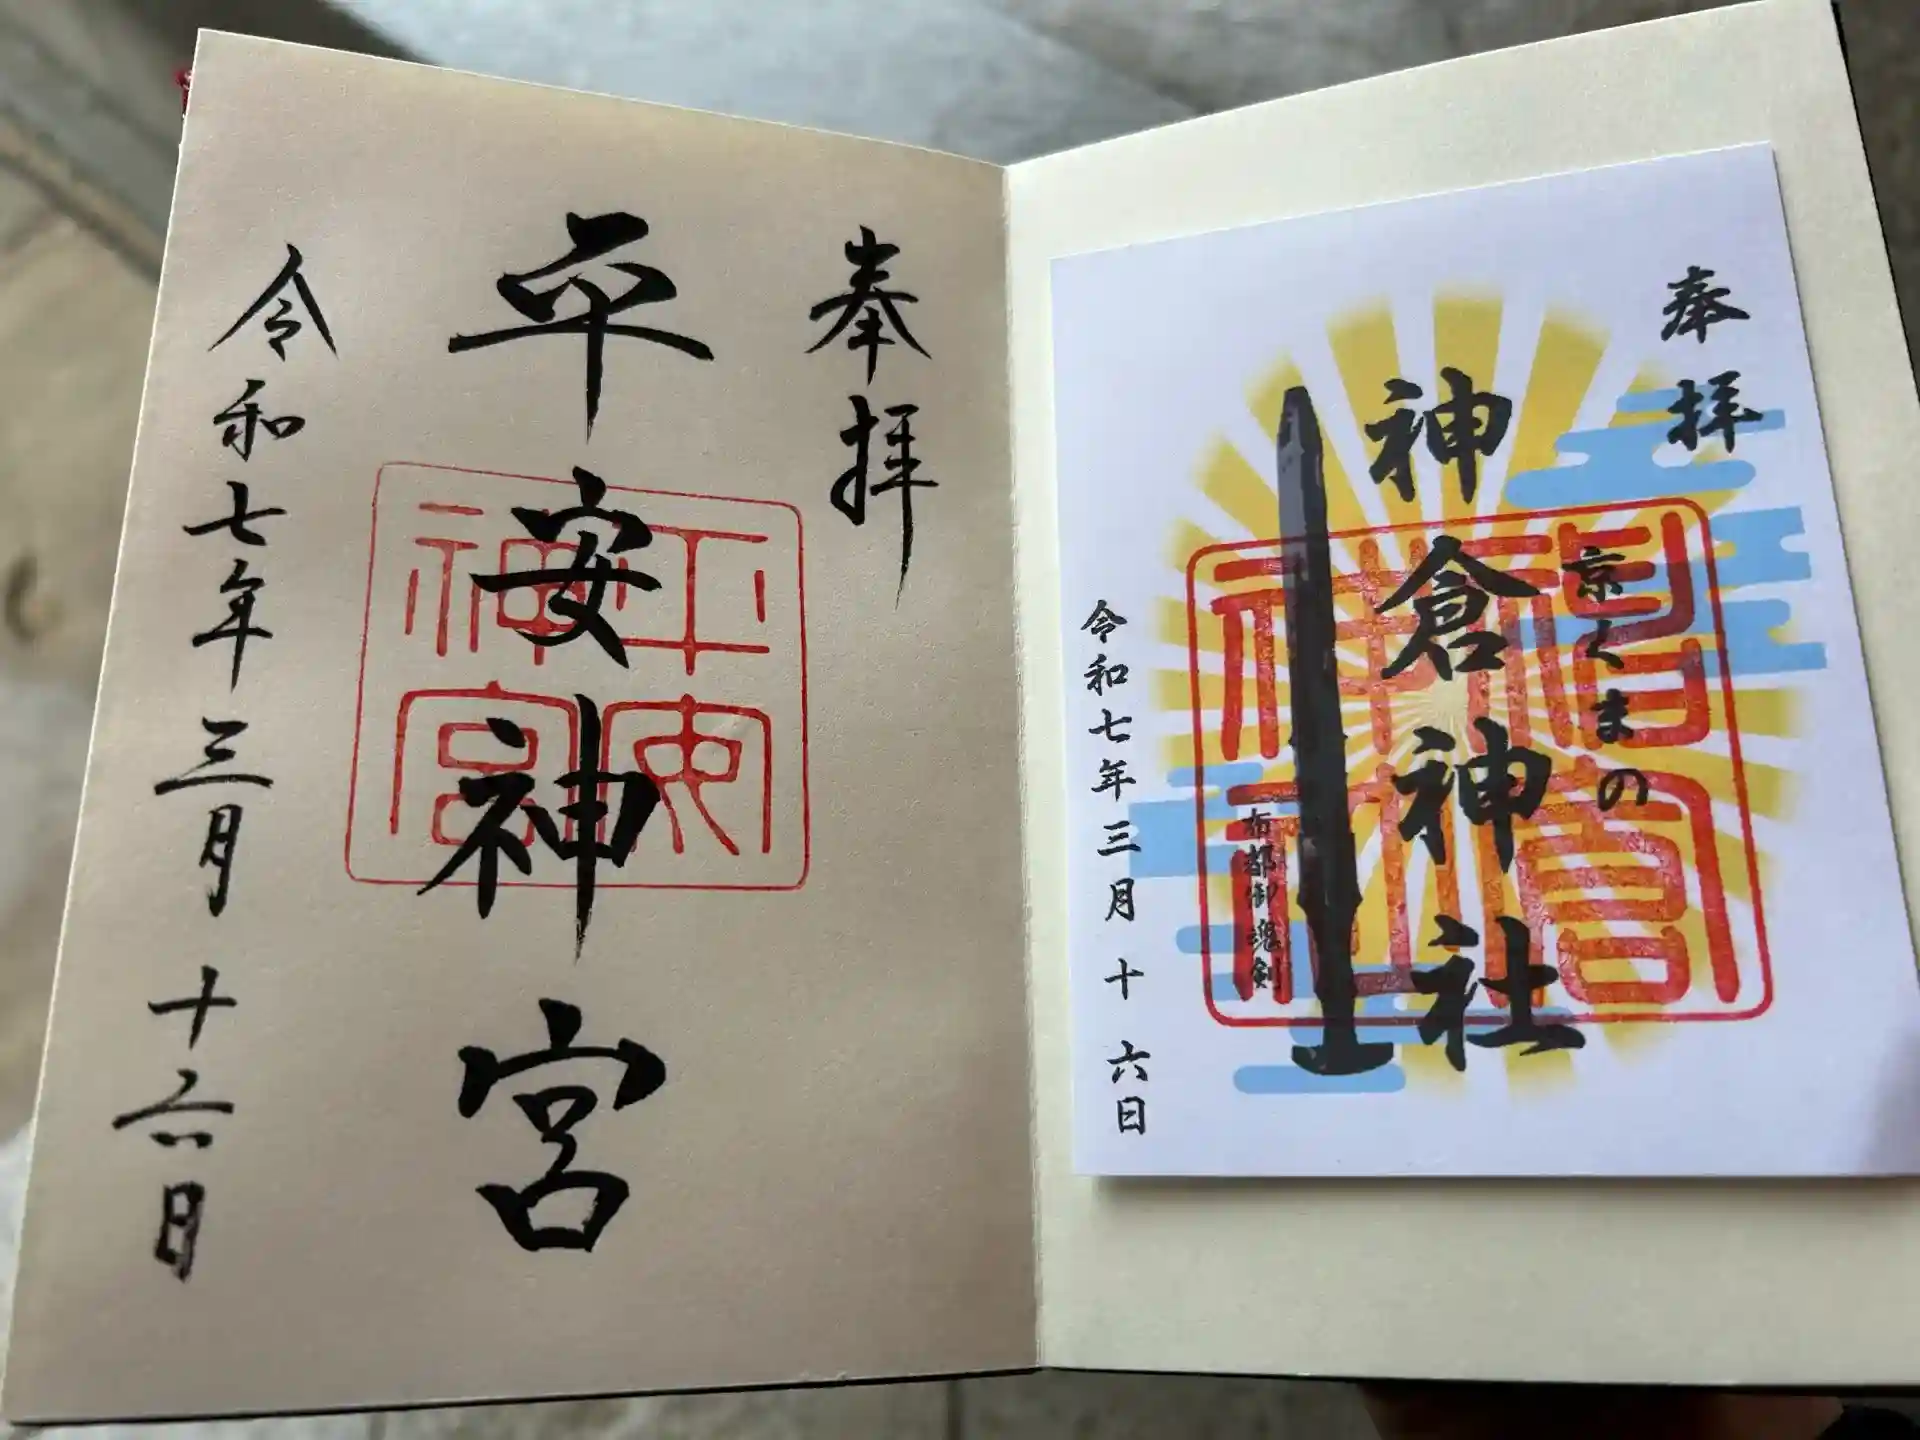 奉拝
平安神宮
平安神宮
令和七年三月十六日
奉拝
京くまの
神倉神社
神倉神社
布都御魂剣
令和七年三月十六日